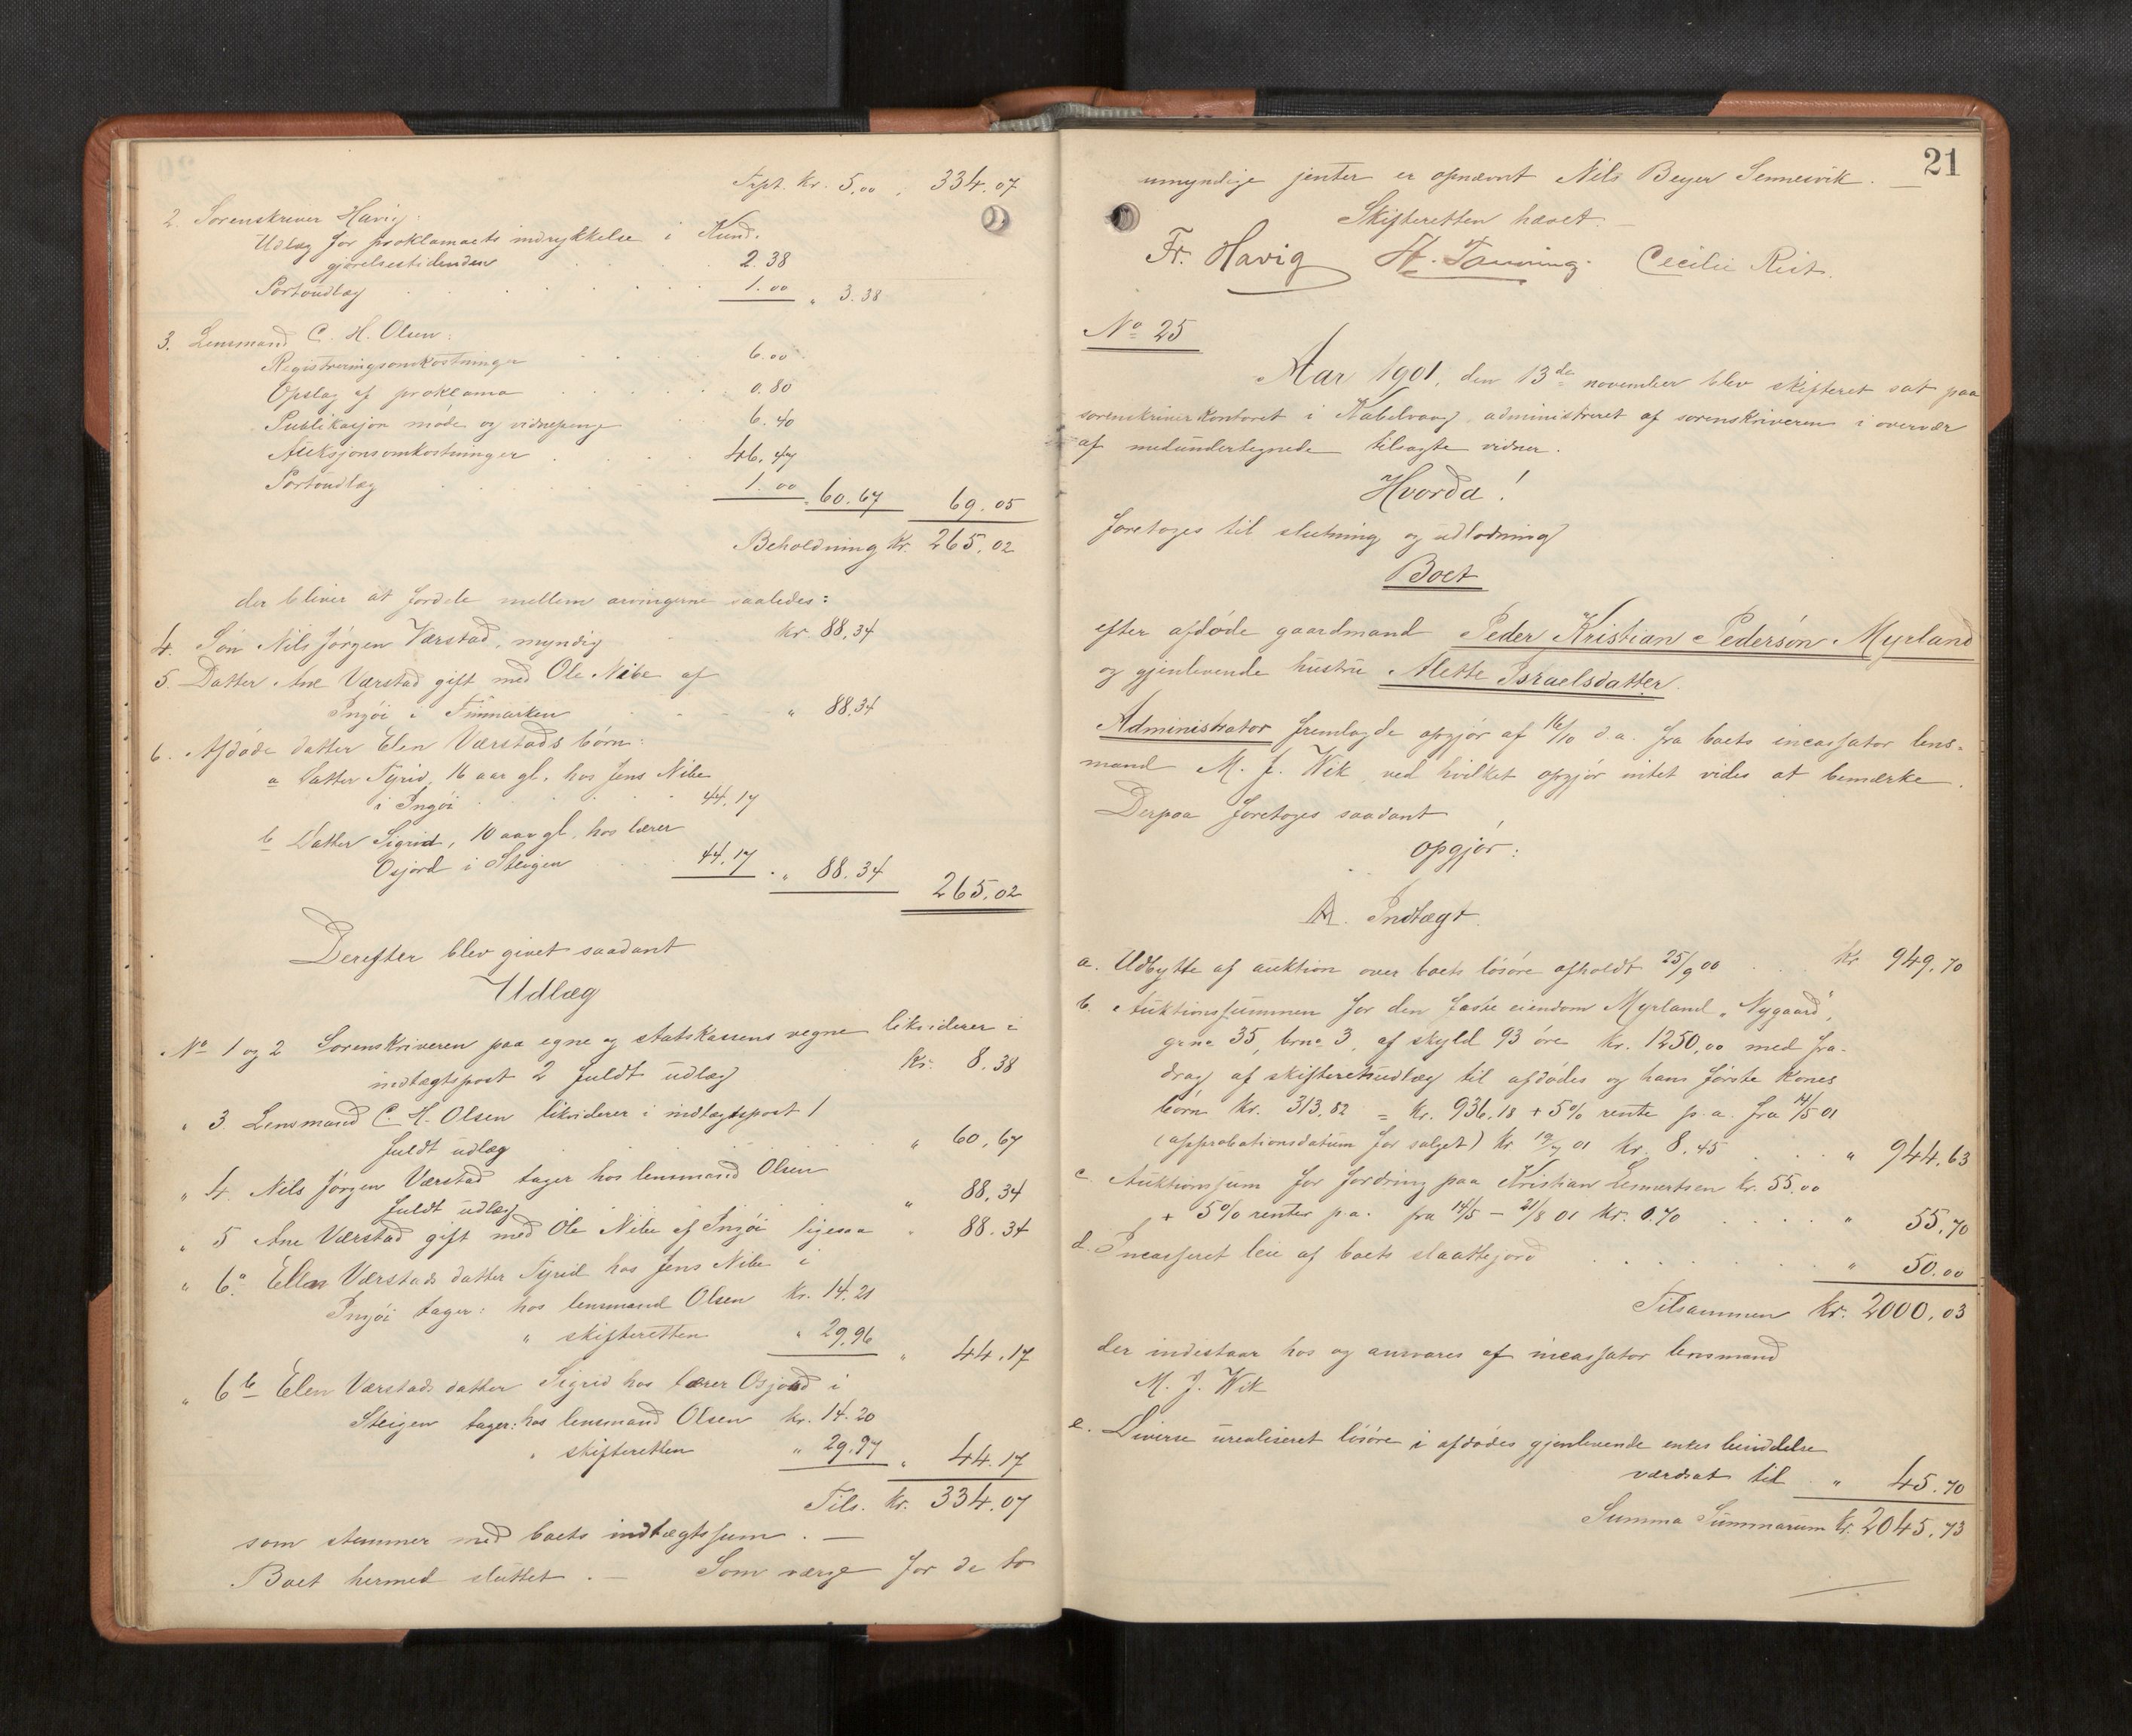 Trspt. kr. 5,00 „ 334.07
2. Sorenskriver Havig:
Udlæg for proklamaets indrykkelse i Kund.
gjørelsestidenden . . . 2.38
Portoudlæg . . . . . . 1.00 „ 3.38
3. Lensmand C. H. Olsen:
Registreringsomkostninger . . . 6.00
Opslag af proklama . . . . 0.80
Publikasjon møde og vidnepenge . 6.40
Auksjonsomkostninger . . . . 46.47
Portoudlæg . . . . . 1.00 „ 60.67 69.05
Beholdning kr. 265.02
der bliver at fordele mellem arvingerne saaledes:
4. Søn Nils Jørgen Værstad, myndig . . kr. 88.34
5. Datter Ane Værstad gift med Ole Nibe af
Ingøi i Finmarken . . . „ 88.34
6. Afdøde datter Elen Værstads børn:
a Datter Tyrid, 16 aar gl. hos Jens Nibe
i Ingøi . . . . . 44.17
b Datter Sigrid, 10 aar gl. hos lærer
Osjord i Steigen . . 44.17 . „ 88.34 265.02
Derefter blev givet saadant
Udlæg
No 1 og 2 Sorenskriveren paa egne og statskassens vegne likviderer i
indtægtspost 2 fuldt udlæg . kr. 8.38
„ 3. Lensmand C. H. Olsen likviderer i indtægtspost 1
fuldt udlæg . . . . . „ 60.67
„ 4. Nils Jørgen Værstad tager hos lensmand Olsen
fuldt udlæg . . . „ 88.34
„ 5 Ane Værstad gift med Ole Nibe af Ingøi ligesaa „ 88.34
„ 6a. Ellen Værstads datter Tyrid hos Jens Nibe i
Ingøi tager: hos lensmand Olsen kr. 14.21
„ skifteretten „ 29.96 „ 44.17
„ 6b Elen Værstads datter Sigrid hos lærer Osjord i
Steigen tager: hos lensmand Olsen kr. 14.20
„ skifteretten „ 29.97 „ 44.17
Tils. kr. 334.07
som stemmer med boets indtægtssum. —
Boet hermed sluttet. — Som værge for de to
21
umyndige jenter er opnævnt Nils Beyer Sennesvik. —
Skifteretten hævet. —
Fr. Havig H. Tønning. Cecilie Rist.
No 25
Aar 1901, den 13de november blev skifteret sat paa
sorenskriverkontoret i Kabelvaag, administreret af sorenskriveren i overvær
af medundertegnede tilsagte vidner.
Hvorda!
foretoges til slutning og udlodning
Boet
efter afdøde gaardmand Peder Kristian Pedersøn Myrland
og gjenlevende hustru Alette Israelsdatter.
Administrator fremlagde opgjør af 16/10 d.a. fra boets incassator lens-
mand M. J. Wik, ved hvilket opgjør intet vides at bemærke.
Derpaa foretoges saadant
opgjør:
A. Indtægt.
a. Udbytte af auktion over boets løsøre afholdt 25/9 00 . . kr 949.70
b. Auktionssummen for den faste eiendom Myrland „Nygaard“,
grno 35, brno 3, af skyld 93 øre kr. 1250,00 med fra-
drag af skifteretsudlæg til afdødes og hans første kones
børn kr. 313.82 = kr. 936.18 + 5% rente p.a. fra 14/5 01
(approbationsdatum for salget) kr 19/7 01 kr. 8.45 . . . „ 944.63
c. Auktionssum for fordring paa Kristian Lennertsen kr. 55.00
+ 5% renter p.a. fra 14/5 – 21/8 01 kr. 0.70 . . . . „ 55.70
d. Incasseret leie af boets slaattejord . . . . . . „ 50.00
Tilsammen kr. 2000.03
der indestaar hos og ansvares af incassator lensmand
M. J. Wik
e. Diverse urealiseret løsøre i afdødes gjenlevende enkes besiddelse
værdsat til . „ 45.70
Summa Summarum kr. 2045.73